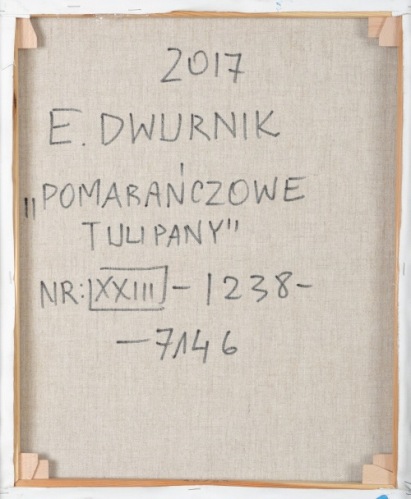 2017
E. DWURNIK
„POMARAŃCZOWE
TULIPANY"
NR: XXIII – 1238–
– 7146